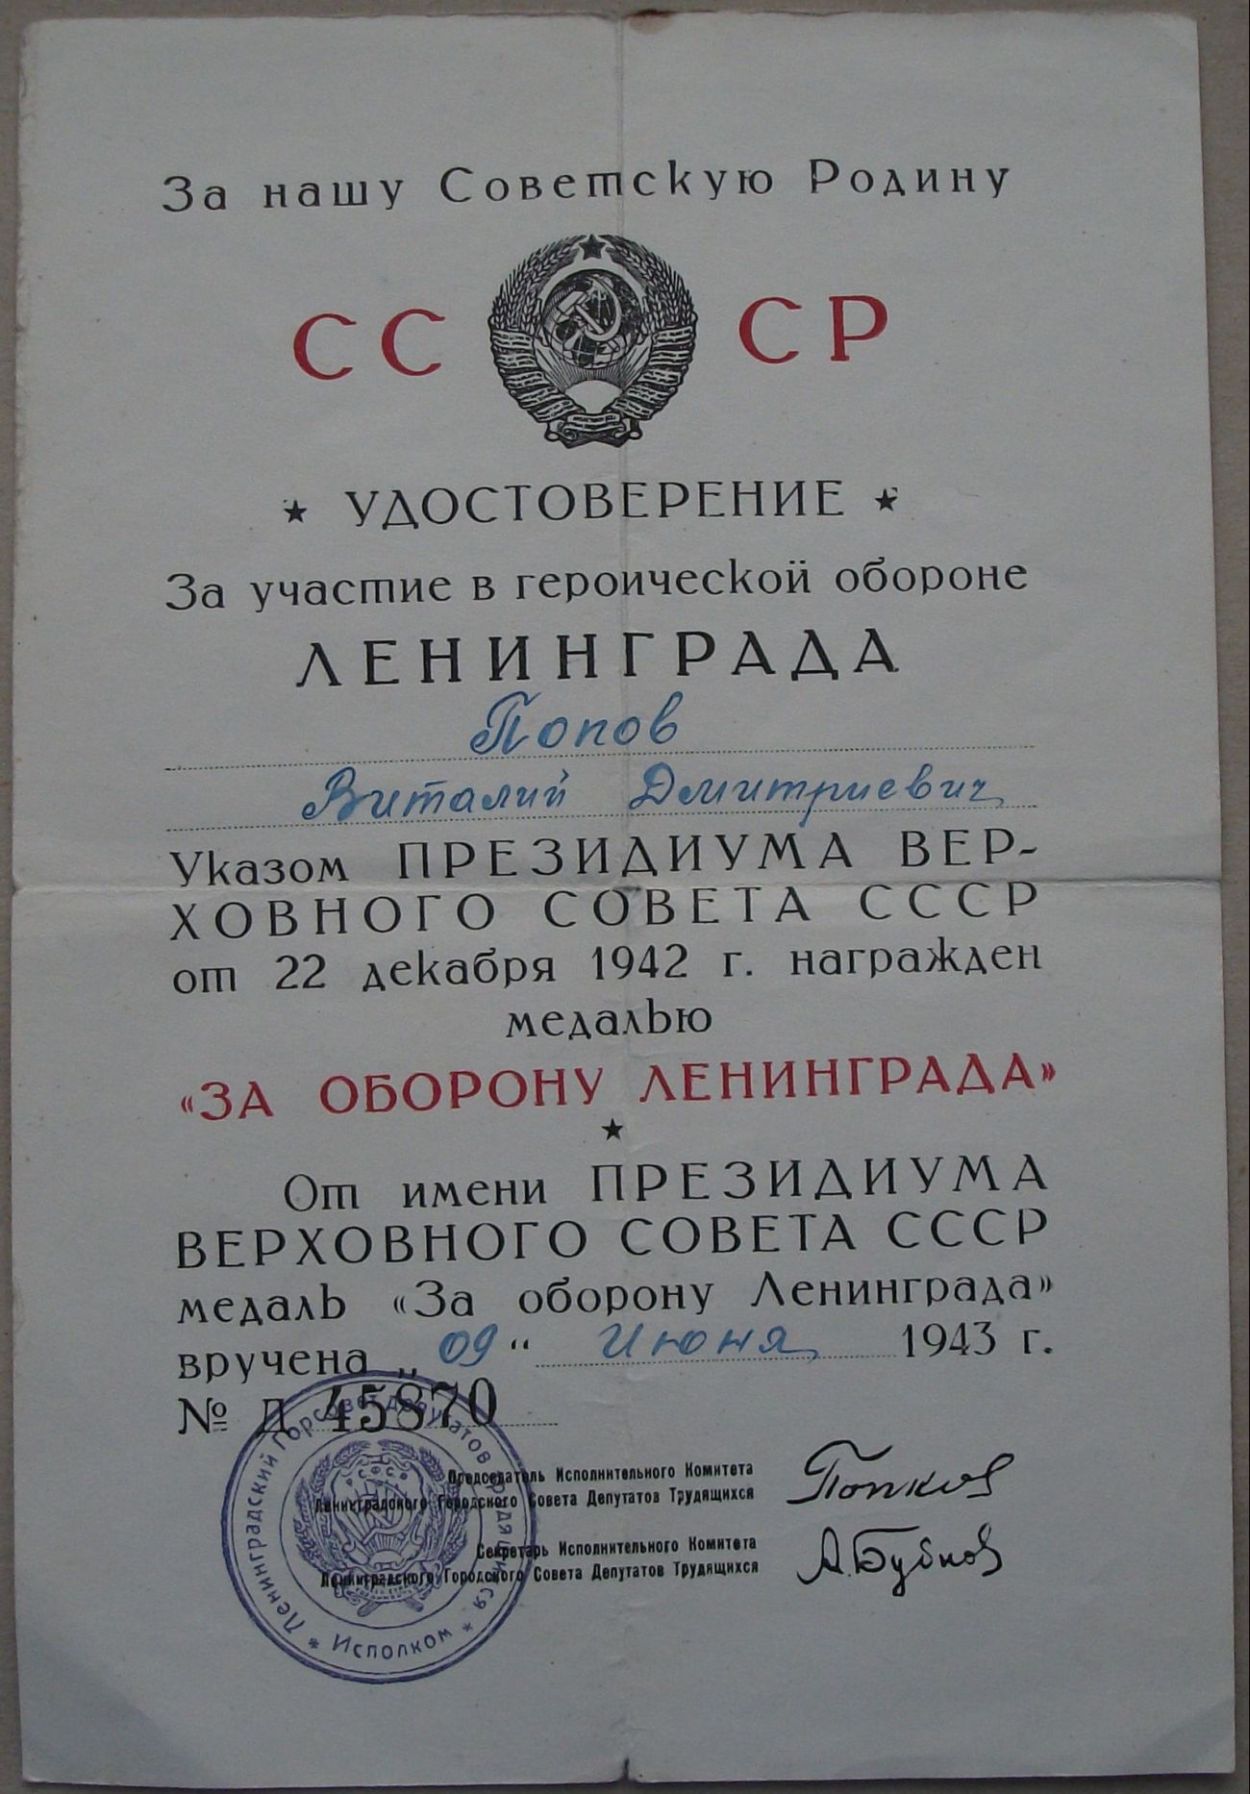 За нашу Советскую Родину
СС СР
★ УДОСТОВЕРЕНИЕ ★
За участие в героической обороне
ЛЕНИНГРАДА
Попов
Виталий Дмитриевич
Указом ПРЕЗИДИУМА ВЕР-
ХОВНОГО СОВЕТА СССР
от 22 декабря 1942 г. награжден
медалью
«ЗА ОБОРОНУ ЛЕНИНГРАДА»
★
От имени ПРЕЗИДИУМА
ВЕРХОВНОГО СОВЕТА СССР
медаль «За оборону Ленинграда»
вручена „09“ Июня 1943 г.
№ Д 45870
Председатель Исполнительного Комитета
Ленинградского Городского Совета Депутатов Трудящихся
Попков
Секретарь Исполнительного Комитета
Ленинградского Городского Совета Депутатов Трудящихся
А. Бубнов
Ленинградский Горсовет депутатов трудящихся
* Исполком *
РСФСР